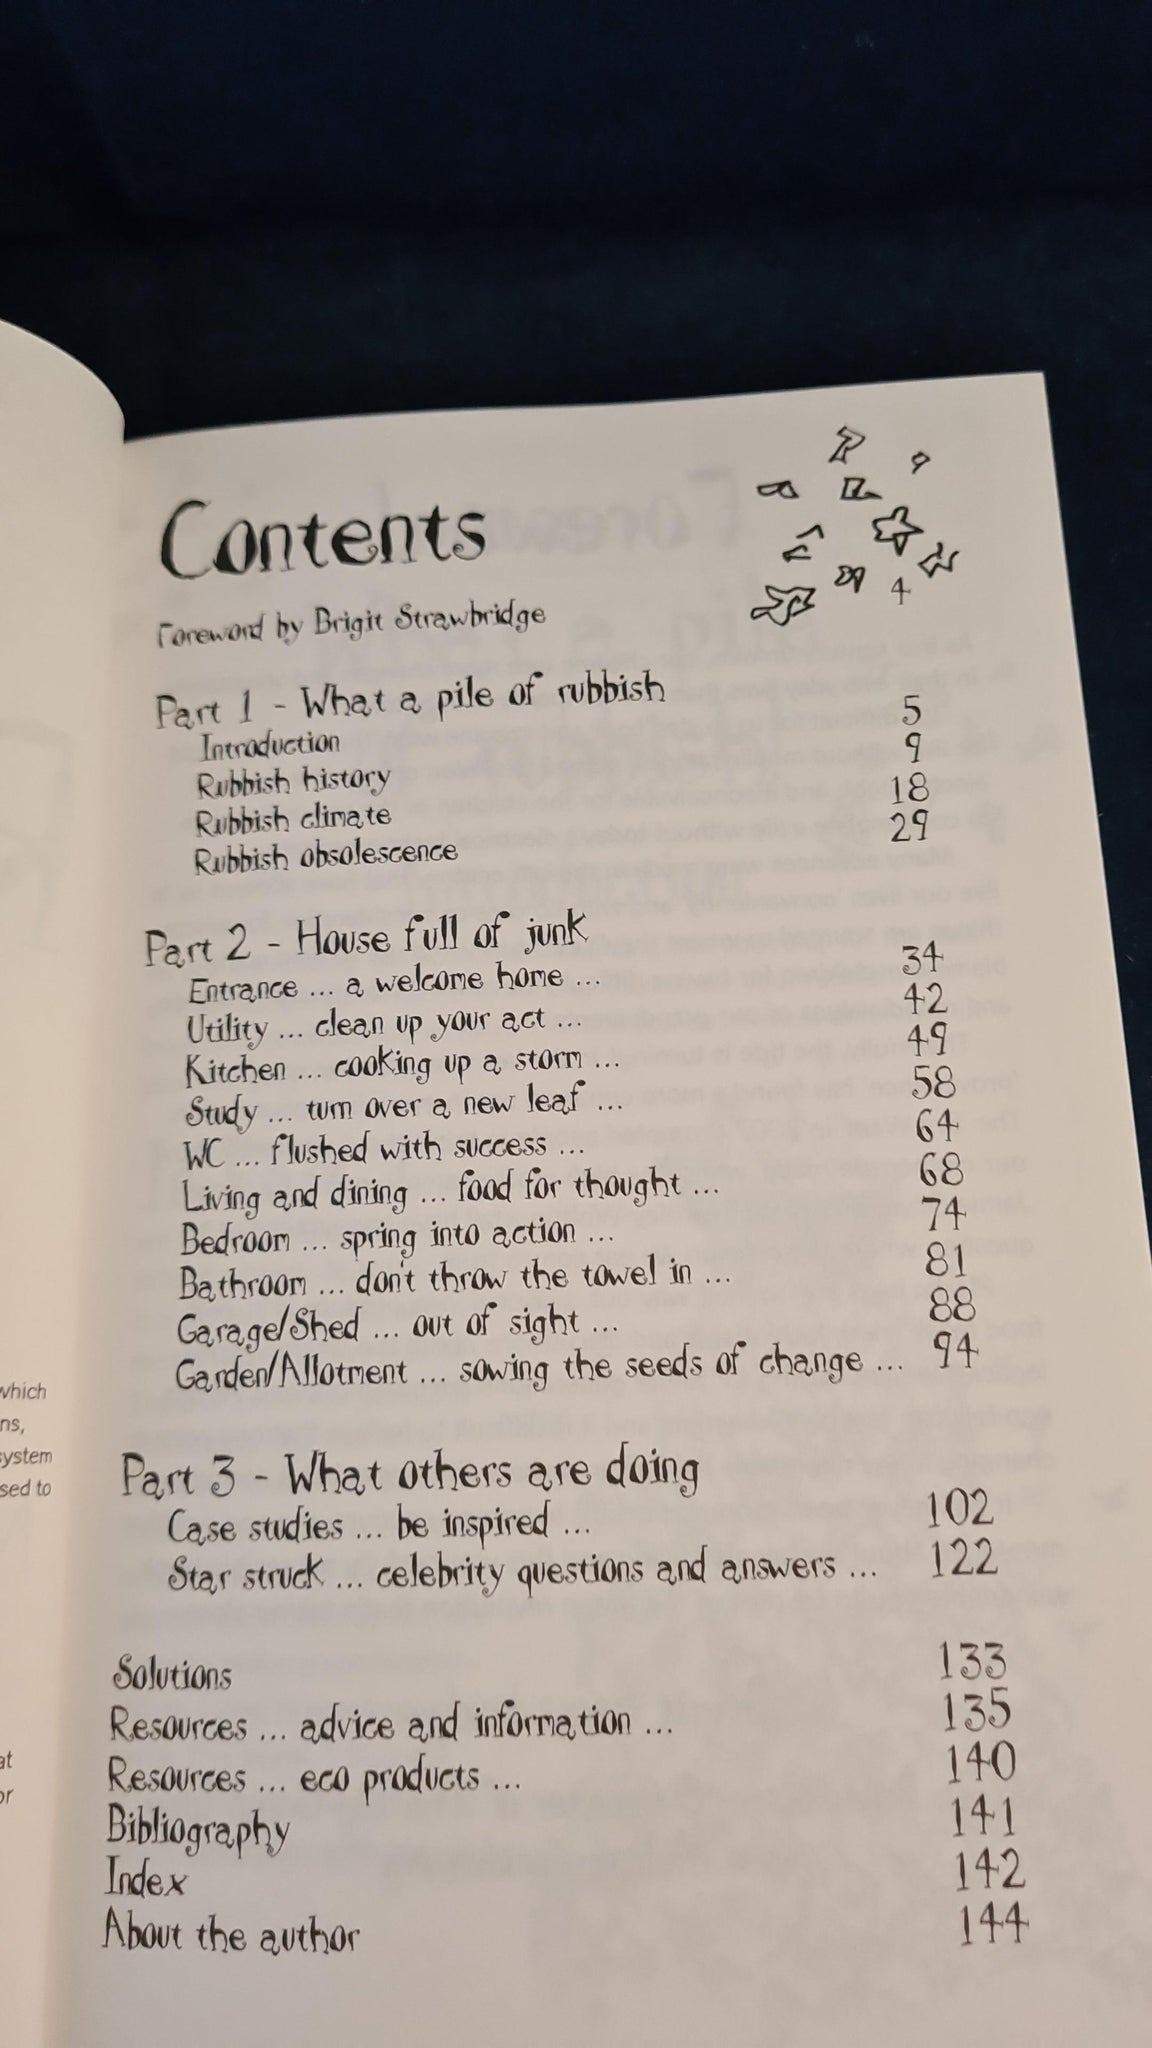 Contents
Foreword by Brigit Strawbridge 4
Part 1 - What a pile of rubbish
Introduction 5
Rubbish history 9
Rubbish climate 18
Rubbish obsolescence 29
Part 2 - House full of junk
Entrance ... a welcome home ... 34
Utility ... clean up your act ... 42
Kitchen ... cooking up a storm ... 49
Study ... turn over a new leaf ... 58
WC ... flushed with success ... 64
Living and dining ... food for thought ... 68
Bedroom ... spring into action ... 74
Bathroom ... don't throw the towel in ... 81
Garage/Shed ... out of sight ... 88
Garden/Allotment ... sowing the seeds of change ... 94
Part 3 - What others are doing
Case studies ... be inspired ... 102
Star struck ... celebrity questions and answers ... 122
Solutions 133
Resources ... advice and information ... 135
Resources ... eco products ... 140
Bibliography 141
Index 142
About the author 144
which
ns,
ystem
sed to
at
or